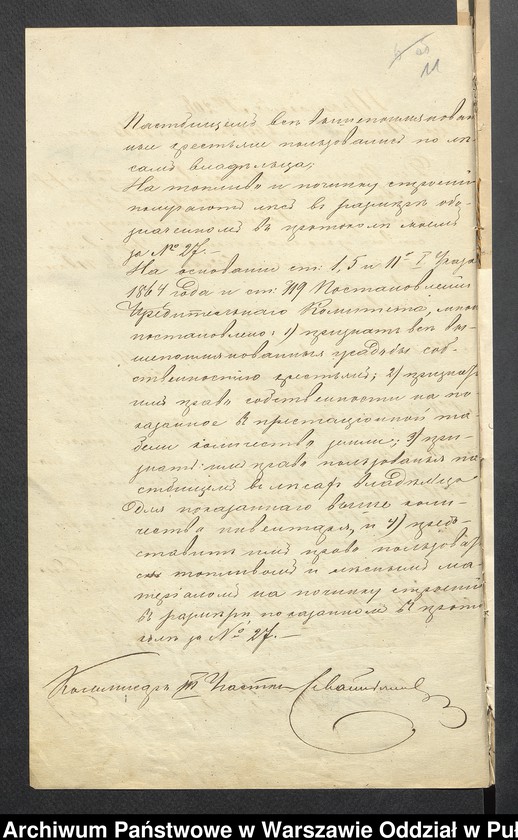 11
Пастбищемъ всѣ вышепоимянован-
ные крестьяне пользовались по лѣ-
самъ владѣльца;
На топливо и починку строеній
получаютъ лѣсъ въ размѣрѣ обо-
значенномъ въ протоколѣ моемъ
за № 27.—
На основаніи ст: 1, 5 и 11й I Указа
1864 года и ст: 719 Постановленія
Учредительнаго Комитета, мною
постановлено: 1) признать всѣ вы-
шепоимянованныя усадьбы соб-
ственностію крестьянъ; 2) признать
имъ право собственности на по-
казанное въ престаціонной та-
бели количество земли; 3) при-
знать имъ право пользованія па-
стбищемъ въ лѣсахъ владѣльца
для показаннаго выше коли-
чества инвентаря, и 4) предо-
ставить имъ право пользовать-
ся топливомъ и лѣснымъ ма-
теріаломъ на починку строеній
въ размѣрѣ показанномъ въ прото-
колѣ за № 27.—
Коммисаръ III Участка
Archiwum Państwowe w Warszawie Oddział w Pu